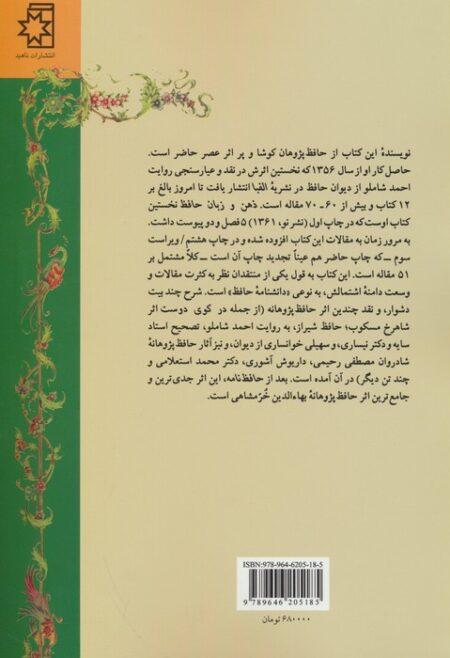 انتشارات ناهید
نویسندهٔ این کتاب از حافظ‌پژوهان کوشا و پر اثر عصر حاضر است.
حاصل کار او از سال ۱۳۵۶ که نخستین اثرش در نقد و عیارسنجی روایت
احمد شاملو از دیوان حافظ در نشریهٔ الفبا انتشار یافت تا امروز بالغ بر
۱۲ کتاب و بیش از ۶۰ـ ۷۰ مقاله است. ذهن و زبان حافظ نخستین
کتاب اوست که در چاپ اول (نشر نو، ۱۳۶۱) ۵ فصل و دو پیوست داشت.
به مرور زمان به مقالات این کتاب افزوده شده و در چاپ هشتم / ویراست
سوم ــ که چاپ حاضر هم عیناً تجدید چاپ آن است ــ کلاً مشتمل بر
۵۱ مقاله است. این کتاب به قول یکی از منتقدان نظر به کثرت مقالات و
وسعت دامنهٔ اشتمالش، به نوعی «دانشنامهٔ حافظ» است. شرح چند بیت
دشوار، و نقد چندین اثر حافظ‌پژوهانه (از جمله در کوی دوست اثر
شاهرخ مسکوب؛ حافظ شیراز، به روایت احمد شاملو، تصحیح استاد
سایه و دکتر نیساری، و سهیلی خوانساری از دیوان، و نیز آثار حافظ‌پژوهانهٔ
شادروان مصطفی رحیمی، داریوش آشوری، دکتر محمد استعلامی و
چند تن دیگر) در آن آمده است. بعد از حافظ‌نامه، این اثر جدی‌ترین و
جامع‌ترین اثر حافظ‌پژوهانهٔ بهاءالدین خُرّمشاهی است.
ISBN:978-964-6205-18-5
9789646205185
۶۸۰۰۰۰ تومان